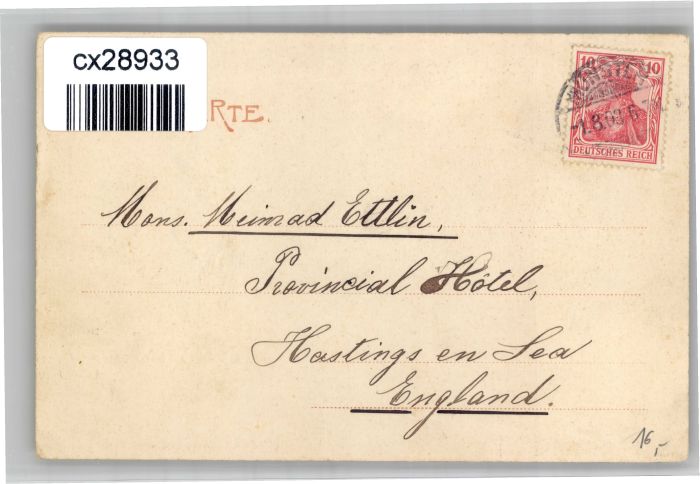 cx28933
RTE.
10 10
-1.8.03.6-
DEUTSCHES REICH
Mons. Meinrad Ettlin,
Provincial Hôtel,
Hastings en Sea
England.
16,-